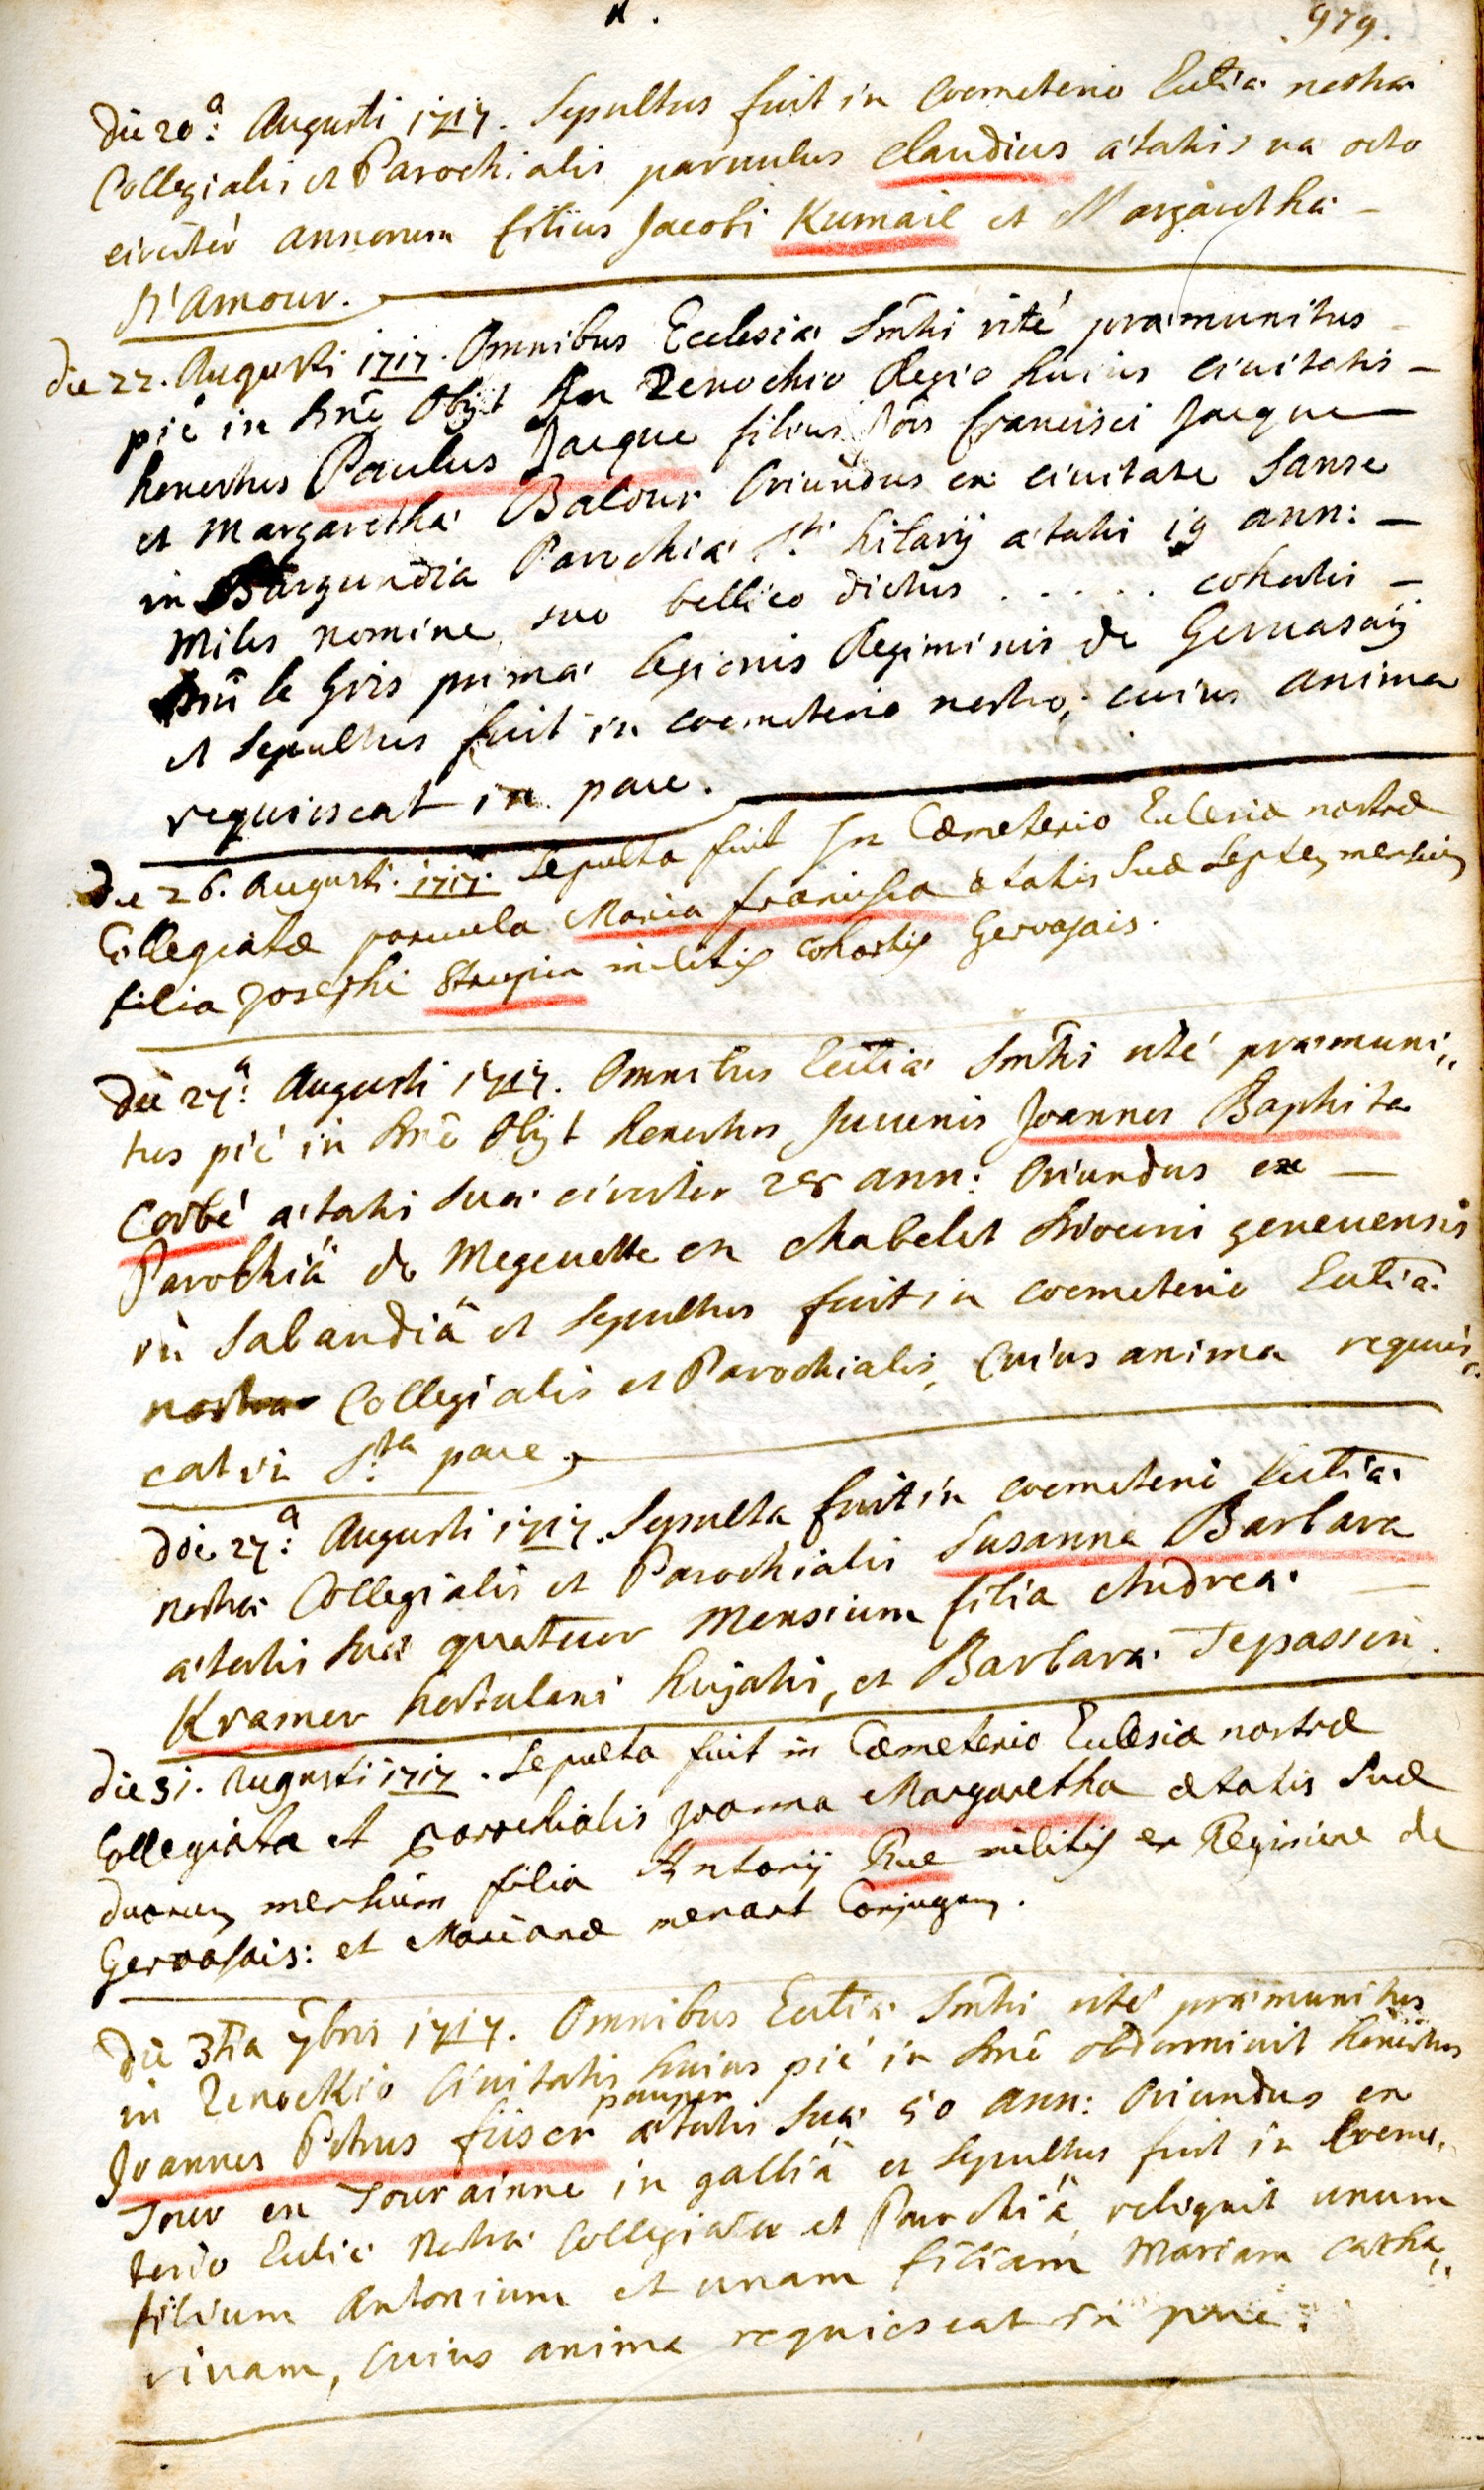 979.
Die 20.a Augusti 1717. Sepultus fuit in Coemeterio Eccliæ nostræ
Collegialis et Parochialis parvulus Claudius ætatis suæ octo
circiter annorum filius Jacobi Kumail et Margarethæ
N'amour.
die 22. Augusti 1717. Omnibus Ecclesiæ Smtis rité præmunitus
pié in Dnō Obijt In Xenochio Regio huius civitatis
honestus Paulus Jacque filius Jois francisci Jacque
et Margarethæ Balour Oriundus ex civitate Sanse
in Burgundia Parochiæ Sti hilarij ætatis 19 ann:
Miles nomine suo bellico dictus . . . . . cohortis
Dni le Gris primæ legionis Regiminis de Gervasaij
et sepultus fuit in coemeterio nostro, cuius anima
requiescat in pace.
Die 26. Augusti. 1717. Sepulta fuit In Cœmeterio Eclesiæ nostræ
Collegiatæ parvula Maria francisca ætatis suæ septem mensium
filia Josephi Strupin militis cohortis Gervasais.
Die 27.a Augusti 1717. Omnibus Eccliæ Smtis rité præmuni„
tus pié in Dnō Obijt honestus Juvenis Joannes Baptista
Corbé ætatis suæ circiter 28 ann: Oriundus ex
Parochiâ de Megevette en Chabelet Diocuni genevensis
in Sabaudiâ et sepultus fuit in coemeterio Eccliæ
nostræ Collegialis et Parochialis, cuius anima requies„
cat in Sta pace.
Die 27.a Augusti 1717. Sepulta fuit in coemeterio Eccliæ
nostræ Collegialis et Parochialis Susanna Barbara
ætatis suæ quatuor Mensium filia Andreæ
Kramer hortulani hujatis, et Barbaræ Tepassen.
die 31. Augusti 1717. Sepulta fuit in Cœmeterio Eclesiæ nostræ
Collegiatæ et parochialis Joanna Margaretha ætatis suæ
duorum mensium filia Antonij Rue militis ex Regimine de
Gervasais: et Marianæ menart Conjugum.
Die 3tia 7bris 1717. Omnibus Eccliæ Smtis rité præmunitus
in Xenochio Civitatis huius pié in Dnō obdormivit honestus
pauper
Joannes Petrus fuser ætatis suæ 50 ann: Oriundus ex
Tour en Tourainne in galliâ et sepultus fuit in Coeme„
terio Eccliæ nostræ Collegiatæ et Parochiâ, reliquit unum
filium Antonium et unam filiam Mariam Catha„
rinam, cuius anima requiescat in pace.